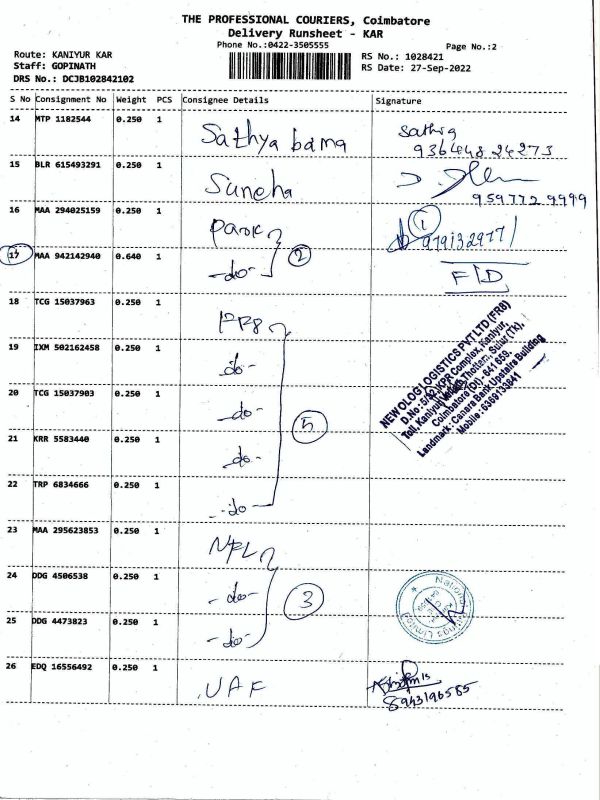 THE PROFESSIONAL COURIERS, Coimbatore
Delivery Runsheet - KAR
Phone No.:0422-3505555
Page No.:2
Route: KANIYUR KAR
Staff: GOPINATH
DRS No.: DCJB102842102
RS No.: 1028421
RS Date: 27-Sep-2022
S No Consignment No Weight PCS Consignee Details Signature
14 MTP 1182544 0.250 1 Sathya bama
15 BLR 615493291 0.250 1
959772 9999
16 MAA 294025159 0.250 1 1
17 MAA 942142940 0.640 1 -do- 2
F D
18 TCG 15037963 0.250 1
19 IXM 502162458 0.250 1 -do-
20 TCG 15037903 0.250 1 -do-
21 KRR 5583440 0.250 1 -do- 5
22 TRP 6834666 0.250 1 -do-
NEWOLOGI LOGISTICS PVT LTD (FR8)
D.No: 5/42, KPR Complex, Kaniyur,
Coimbatore (Dt) - 641 659.
Landmark : Canara Bank Upstairs Building
Mobile : 6369133941
23 MAA 295623853 0.250 1 NPL
24 DDG 4506538 0.250 1 -do- 3
25 DDG 4473823 0.250 1 -do-
26 EDQ 16556492 0.250 1 UAF
8943196585